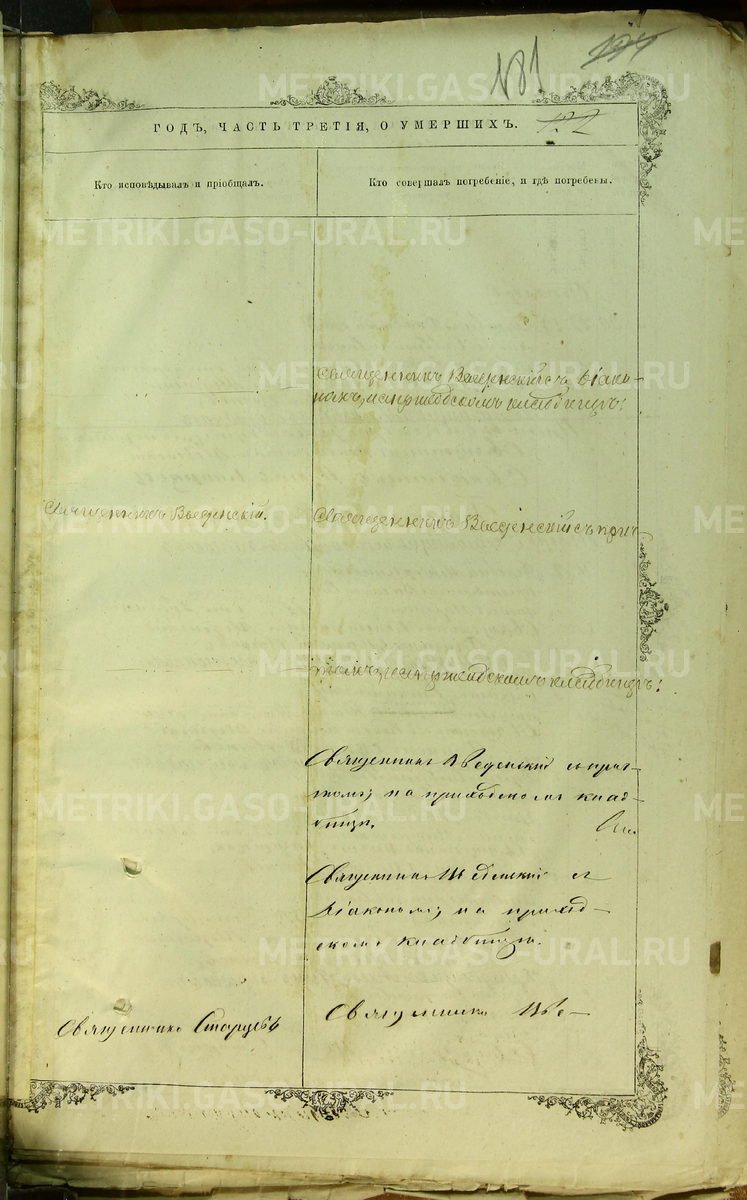 181
ГОДЪ, ЧАСТЬ ТРЕТІЯ, О УМЕРШИХЪ.
Кто исповѣдывалъ и пріобщалъ.
Кто совершалъ погребеніе, и гдѣ погребены.
Священникъ Введенскій съ діако-
номъ, на приходскомъ кладбищѣ.
Священникъ Введенскій.
Священникъ Введенскій съ прич-
томъ, на приходскомъ кладбищѣ.
Священникъ Введенскій съ прич-
томъ, на приходскомъ клад-
бищѣ.
Священникъ Введенскій съ
діакономъ, на приход-
скомъ кладбищѣ.
Священникъ Старцевъ
Священникъ Вве-
METRIKI.GASO-URAL.RU